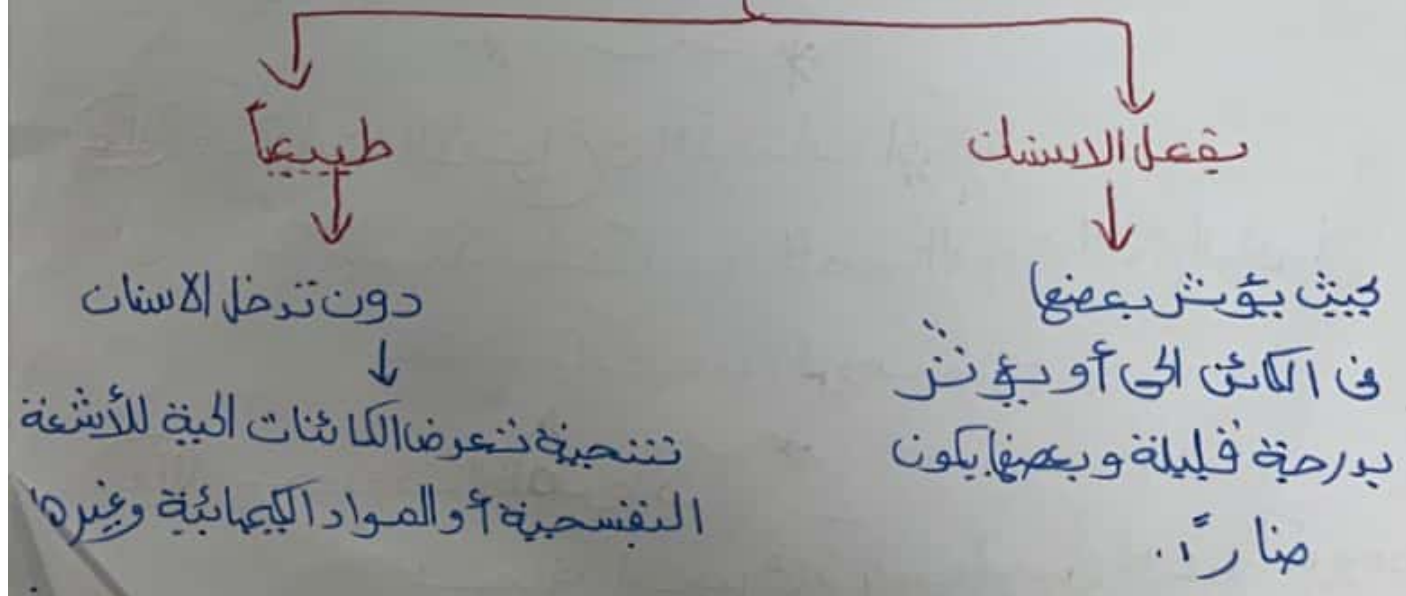 بفعل الانسان
طبيعياً
بحيث يؤثر بعضها
في الكائن الحي أو يؤثر
بدرجة قليلة وبعضها يكون
ضاراً.
دون تدخل الانسان
نتيجة تعرض الكائنات الحية للأشعة
البنفسجية أو المواد الكيميائية وغيرها